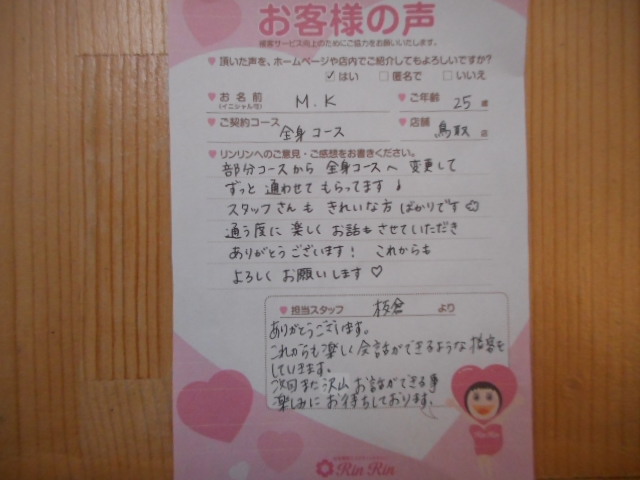 お客様の声
顧客サービス向上のためにご協力をお願いいたします。
頂いた声を、ホームページや店内でご紹介してもよろしいですか?
はい 匿名で いいえ
お名前 M.K ご年齢 25 歳
(イニシャル可)
ご契約コース 全身コース 店舗 鳥取 店
リンリンへのご意見・ご感想をお書きください。
部分コースから 全身コースへ 変更して
ずっと 通わせて もらってます!
スタッフさんも きれいな方 ばかりです☆
通う度に 楽しく お話もさせていただき
ありがとうございます! これからも
よろしく お願いします♡
担当スタッフ 板倉 より
ありがとうございます。
これからも楽しく会話ができるような接客を
していきます。
次回また沢山お話ができる事
楽しみにお待ちしております。
Rin Rin